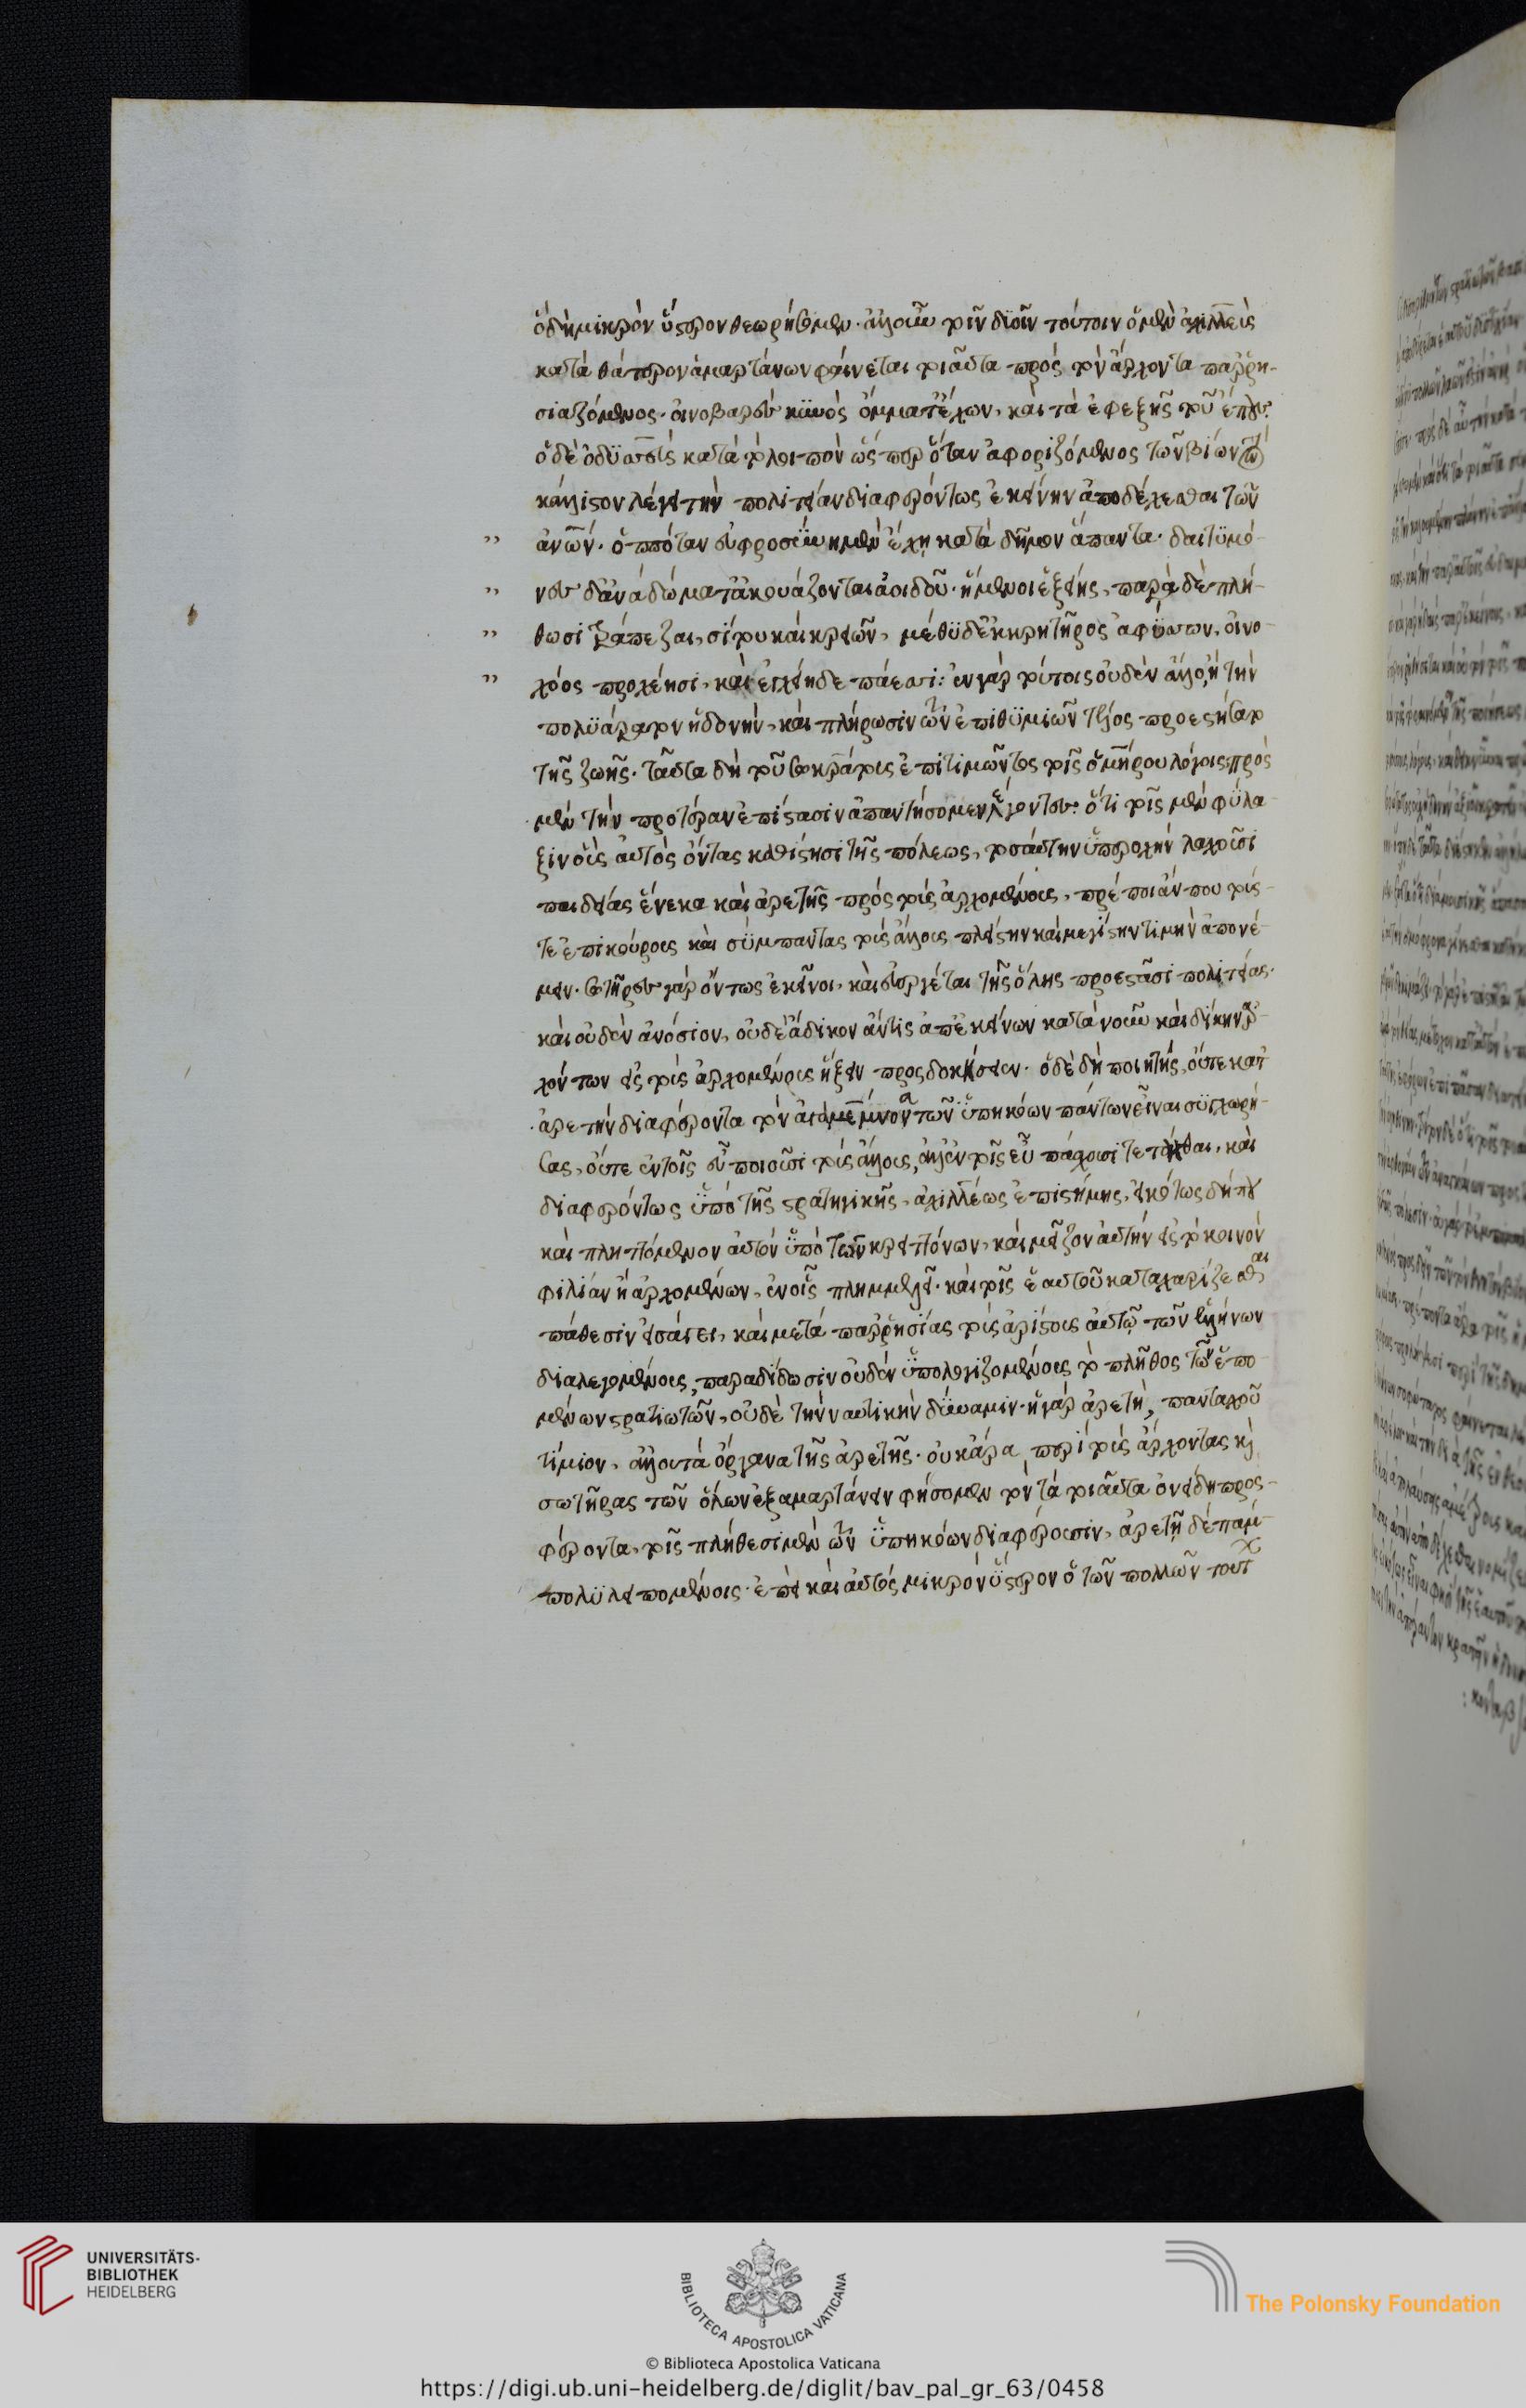 ὃ δὴ μικρὸν ὕστερον θεωρήσωμεν. ἀλλ' οὖν τοῖν δυοῖν τούτοιν ὁ μὲν ἀχιλλεὺς
κατὰ θάτερον ἁμαρτάνων φαίνεται τοιαῦτα πρὸς τὸν ἄρχοντα παρρη-
σιαζόμενος. οἰνοβαρὲς κυνὸς ὄμματ' ἔχων, καὶ τὰ ἐφεξῆς τοῦ ἔπους.
ὁ δὲ ὀδυσσεὺς κατὰ τὸ λοιπὸν ὥσπερ ὅταν ἀφοριζόμενος τῶν βίων τὸν
κάλλιστον λέγει τὴν πολιτείαν διαφερόντως ἐκείνην ἀποδέχεσθαι τῶν
" ἀνων. ὁππόταν εὐφροσύνη μὲν ἔχῃ κατὰ δῆμον ἅπαντα. δαιτυμό-
" νες δ' ἀνὰ δώματ' ἀκουάζονται ἀοιδοῦ. ἥμενοι ἑξείης, παρὰ δὲ πλή-
" θωσι τράπεζαι, σίτου καὶ κρειῶν, μέθυ δ' ἐκ κρητῆρος ἀφύσσων, οἰνο-
" χόος προχέησι, καὶ ἐγχείῃ δεπάεσσι: ἐν γὰρ τούτοις οὐδὲν ἄλλο, ἢ τὴν
πολυάρατον ἡδονὴν, καὶ πλήρωσιν τῶν ἐπιθυμιῶν τέλος προεστήσατο
τῆς ζωῆς. ταῦτα δὴ τοῦ σωκράτους ἐπιτιμῶντος τοῖς ὁμήρου λόγοις, πρὸς
μὲν τὴν προτέραν ἐπίστασιν ἀπαντήσομεν λέγοντες. ὅτι τοῖς μὲν φύλα-
ξιν οὓς αὐτὸς ὄντας καθίστησι τῆς πόλεως, τοσαύτην ὑπεροχὴν λαχοῦσι
παιδείας ἕνεκα καὶ ἀρετῆς πρὸς τοὺς ἀρχομένους, πρέποι ἄν που τούς
τε ἐπικούρους καὶ σύμπαντας τοὺς ἄλλους πλείστην καὶ μεγίστην τιμὴν ἀπονέ-
μειν. σωτῆρες γὰρ ὄντως ἐκεῖνοι, καὶ εὐεργέται τῆς ὅλης προεστᾶσι πολιτείας.
καὶ οὐδὲν ἀνόσιον, οὐδὲ ἄδικον ἄν τις ἀπ' ἐκείνων κατὰ νοῦν καὶ δίκην ἀρ-
χόντων εἰς τοὺς ἀρχομένους ἥξειν προσδοκήσειεν. ὁ δὲ δὴ ποιητὴς, οὔτε κατ'
ἀρετὴν διαφέροντα τὸν ἀγαμέμνονα τῶν ὑπηκόων πάντων εἶναι συγχωρή-
σας, οὔτε ἐν τοῖς εὖ ποιοῦσι τοὺς ἄλλους, ἀλλ' ἐν τοῖς εὖ πάσχουσι τετάχθαι, καὶ
διαφερόντως ὑπὸ τῆς στρατηγικῆς, ἀχιλλέως ἐπιστήμης, εἰκότως δήπου
καὶ πληττόμενον αὐτὸν ὑπὸ τῶν κρειττόνων, καὶ μεῖζον αὐτὴν εἰς τὸ κοινὸν
φιλίαν ἢ ἀρχομένων, ἐν οἷς πλημμελεῖ. καὶ τοῖς ἑαυτοῦ καταχαρίζεσθαι
πάθεσιν εἰσάγει, καὶ μετὰ παρρησίας τοὺς ἀρίστους αὐτῷ τῶν ἑλλήνων
διαλεγομένους, παραδίδωσιν οὐδὲν ὑπολογιζομένους τὸ πλῆθος τῶν ἑπο-
μένων στρατιωτῶν, οὐδὲ τὴν ναυτικὴν δύναμιν. ἡ γὰρ ἀρετὴ, πανταχοῦ
τίμιον, ἀλλ' οὐ τὰ ὄργανα τῆς ἀρετῆς. οὐκ ἄρα, περὶ τοὺς ἄρχοντας κ(αὶ)
σωτῆρας τῶν ὅλων ἐξαμαρτάνειν φήσομεν τὸν τὰ τοιαῦτα ὀνείδη προσ-
φέροντα, τοῖς πλήθεσι μὲν τῶν ὑπηκόων διαφέρουσιν, ἀρετῇ δὲ πάμ-
πολυ λειπομένοις. ἐπεὶ καὶ αὐτὸς μικρὸν ὕστερον ὁ τῶν πολλῶν τούτ
UNIVERSITÄTS-
BIBLIOTHEK
HEIDELBERG
BIBLIOTECA APOSTOLICA VATICANA
The Polonsky Foundation
© Biblioteca Apostolica Vaticana
https://digi.ub.uni-heidelberg.de/diglit/bav_pal_gr_63/0458